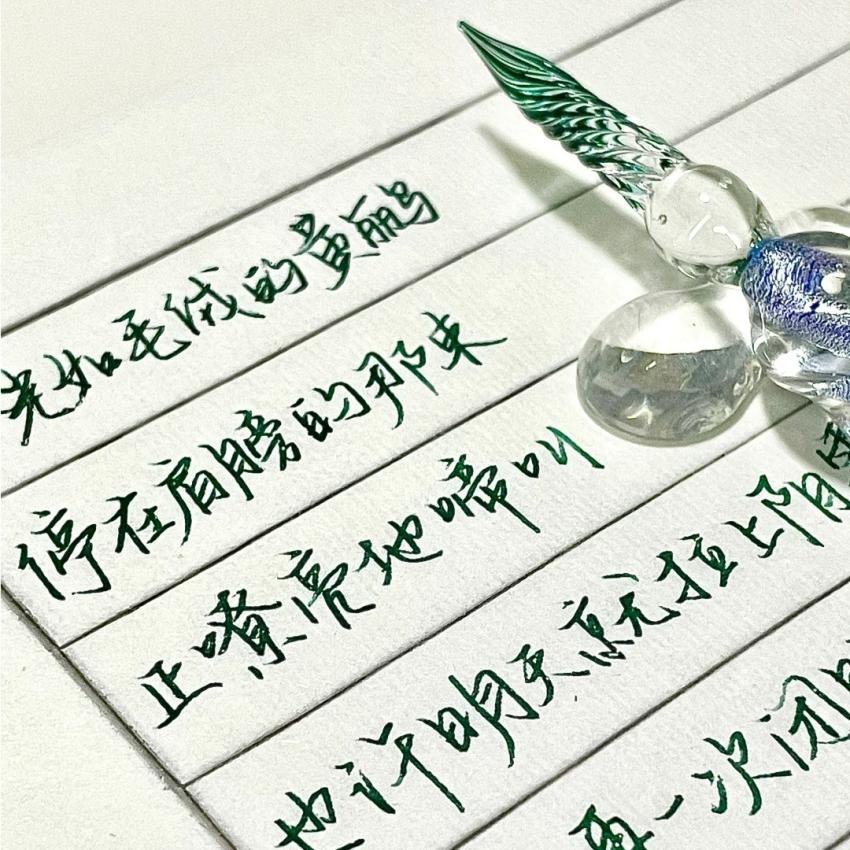 光如毛绒的黄鹂
停在肩膀的那束
正嘹亮地啼叫
也许明天就拉上阴
再一次闭